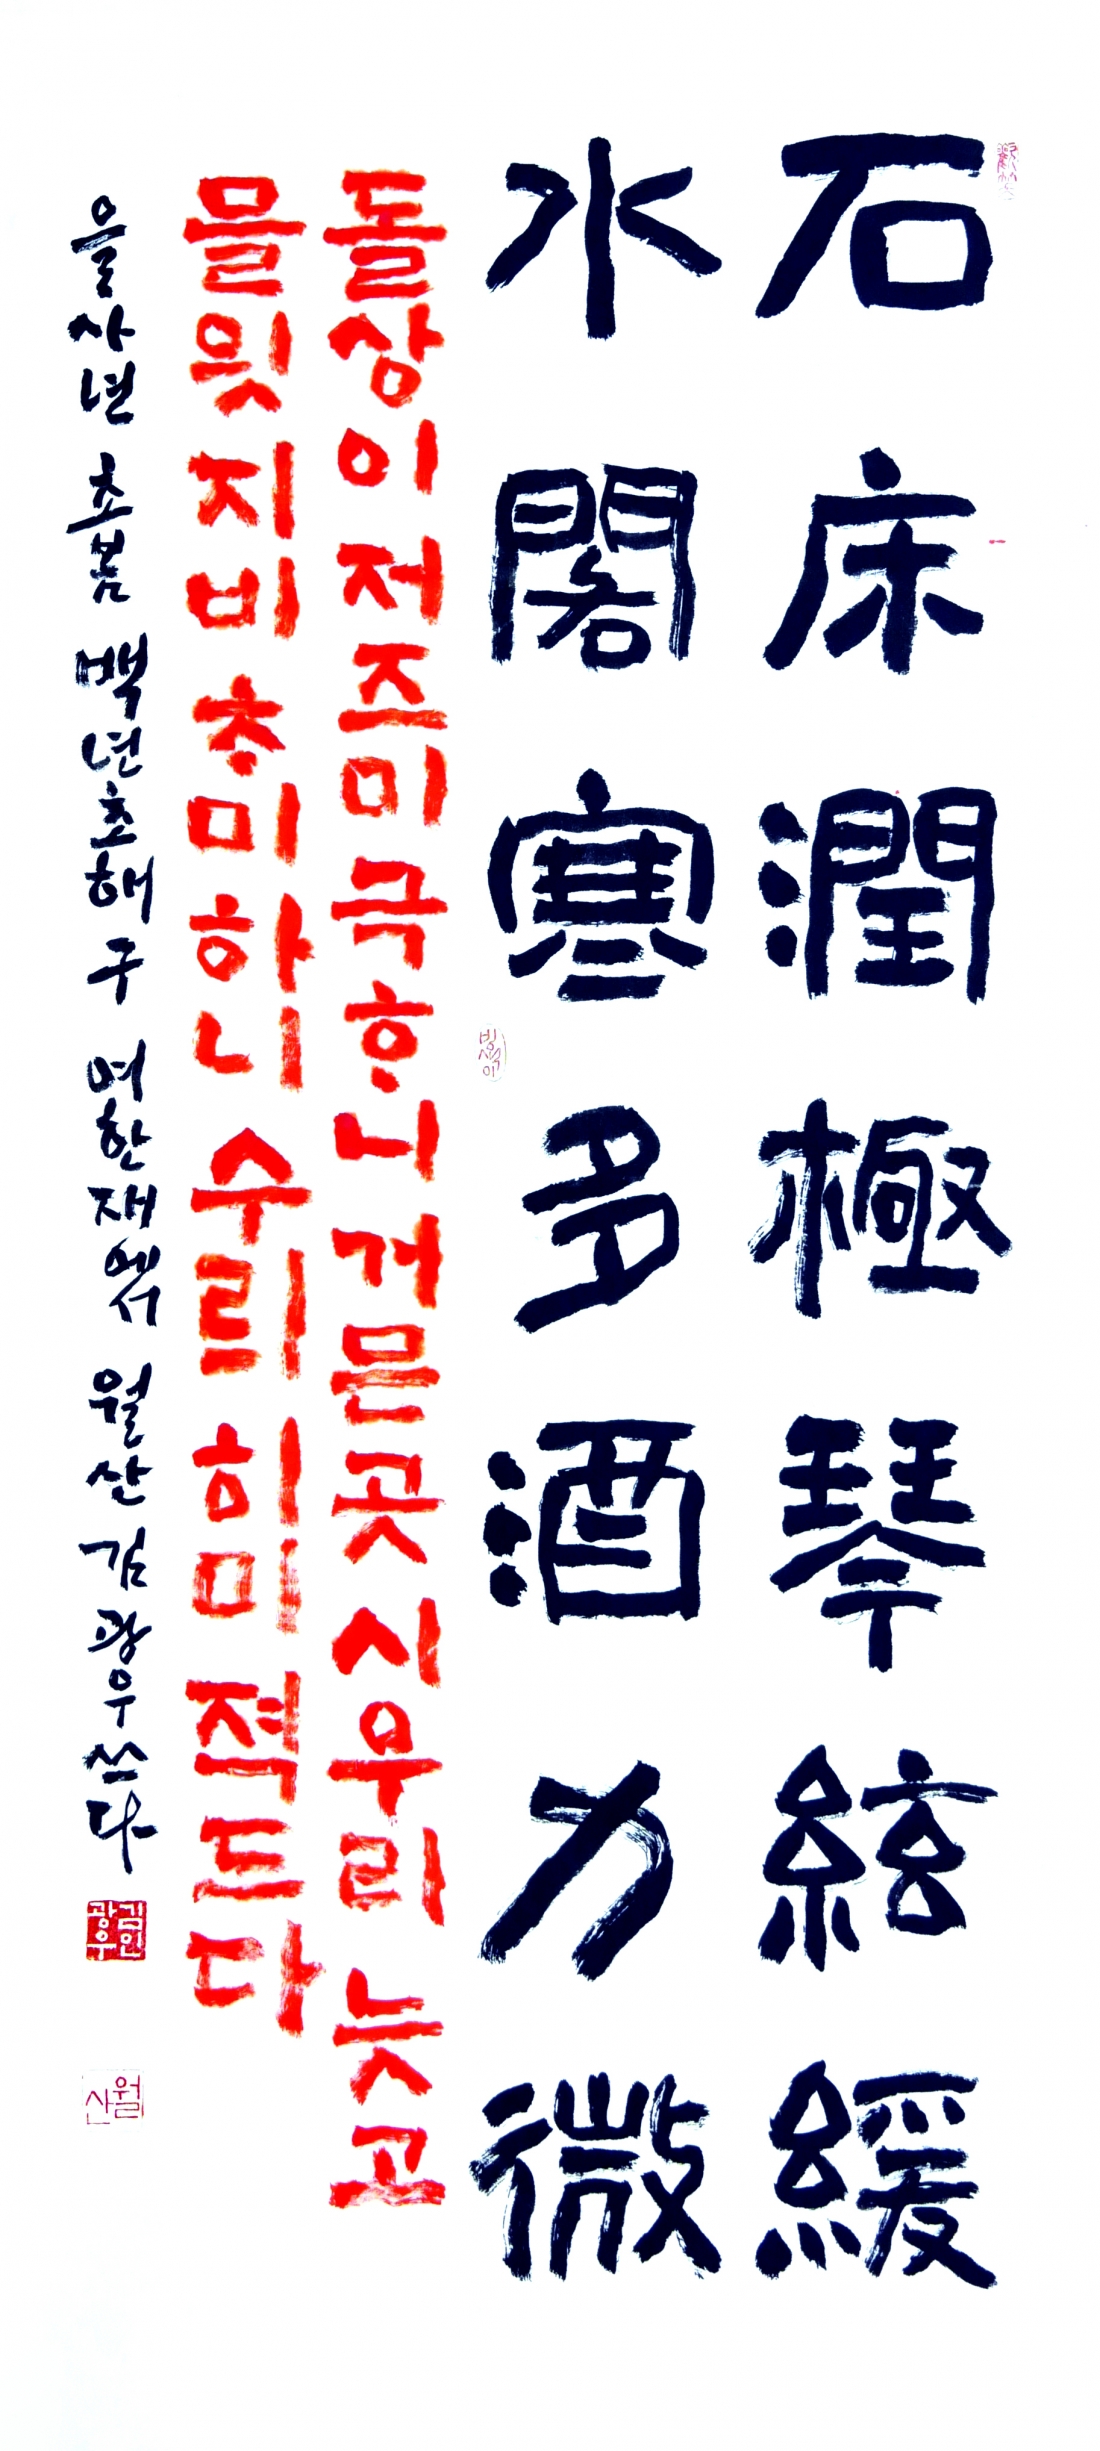 石床潤極琴絃緩
水閣寒多酒力微
돌상이 저즈미 극흐니 거믄곳 시우리 늣고
믈읫지비 츠미 하니 수릐 히미 젹드다
을사년 초봄 백년초해 구 여한재에서 월산 김광우 쓰다
김인광우
월산